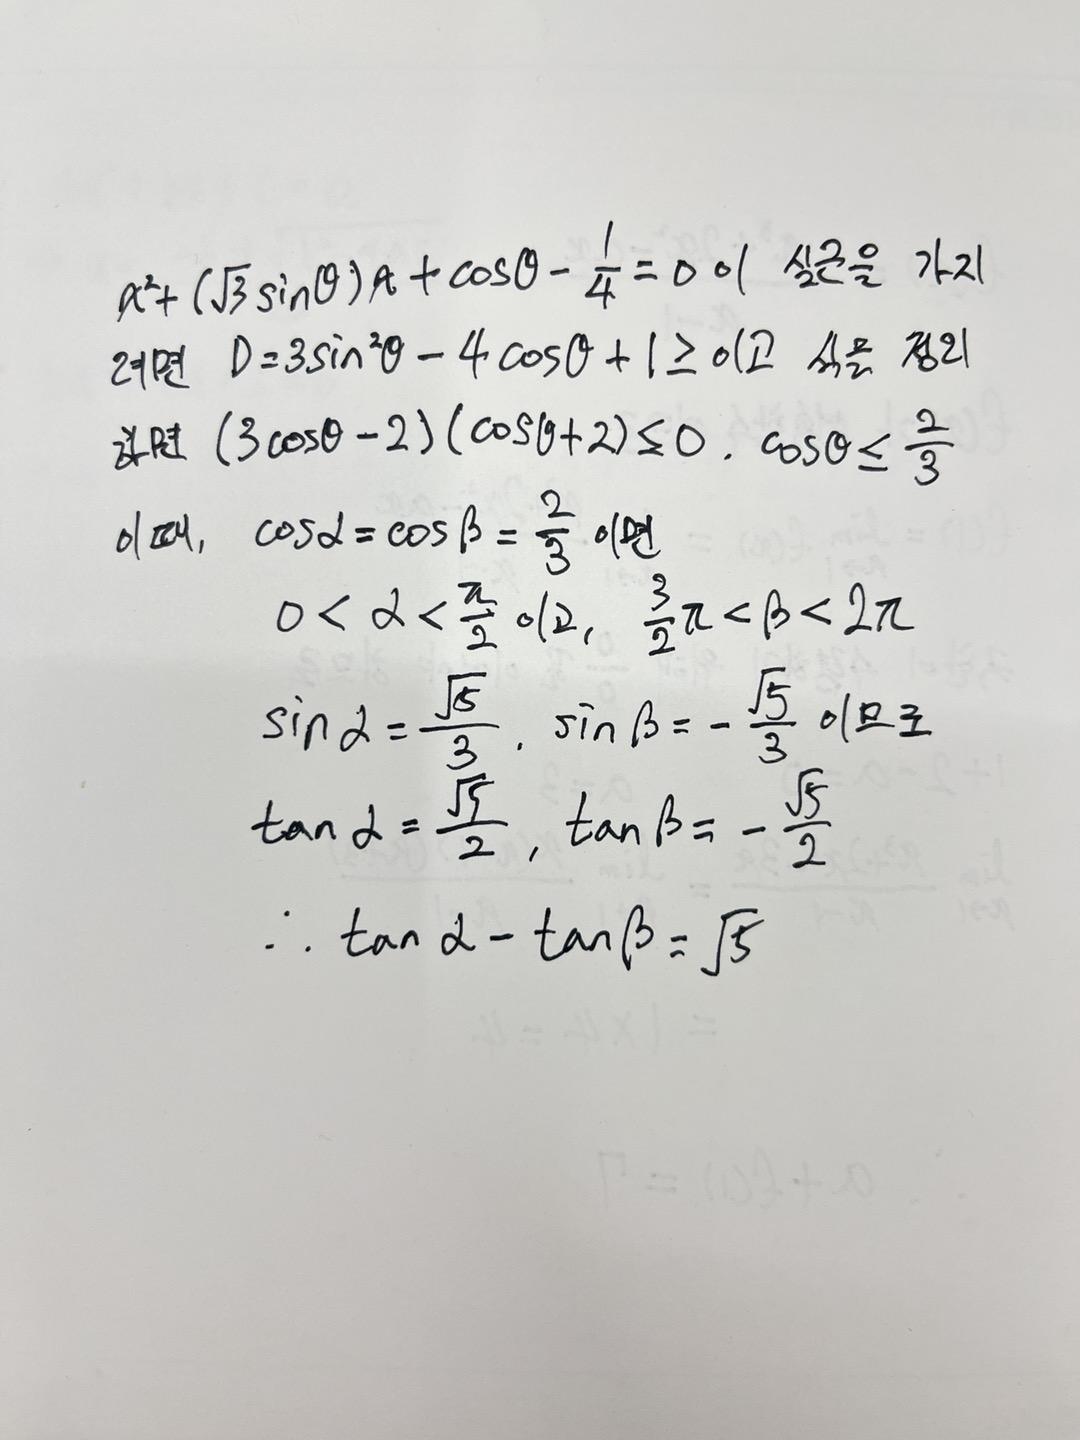 x²+(√3 sinθ)x+cosθ-1/4=0 이 실근을 가지
려면 D=3sin²θ-4cosθ+1≥0이고 식을 정리
하면 (3cosθ-2)(cosθ+2)≤0. cosθ≤2/3
이때, cosα=cosβ=2/3 이면
0<α<π/2 이고, 3/2π<β<2π
sinα=√5/3, sinβ=-√5/3 이므로
tanα=√5/2, tanβ=-√5/2
∴ tanα-tanβ=√5